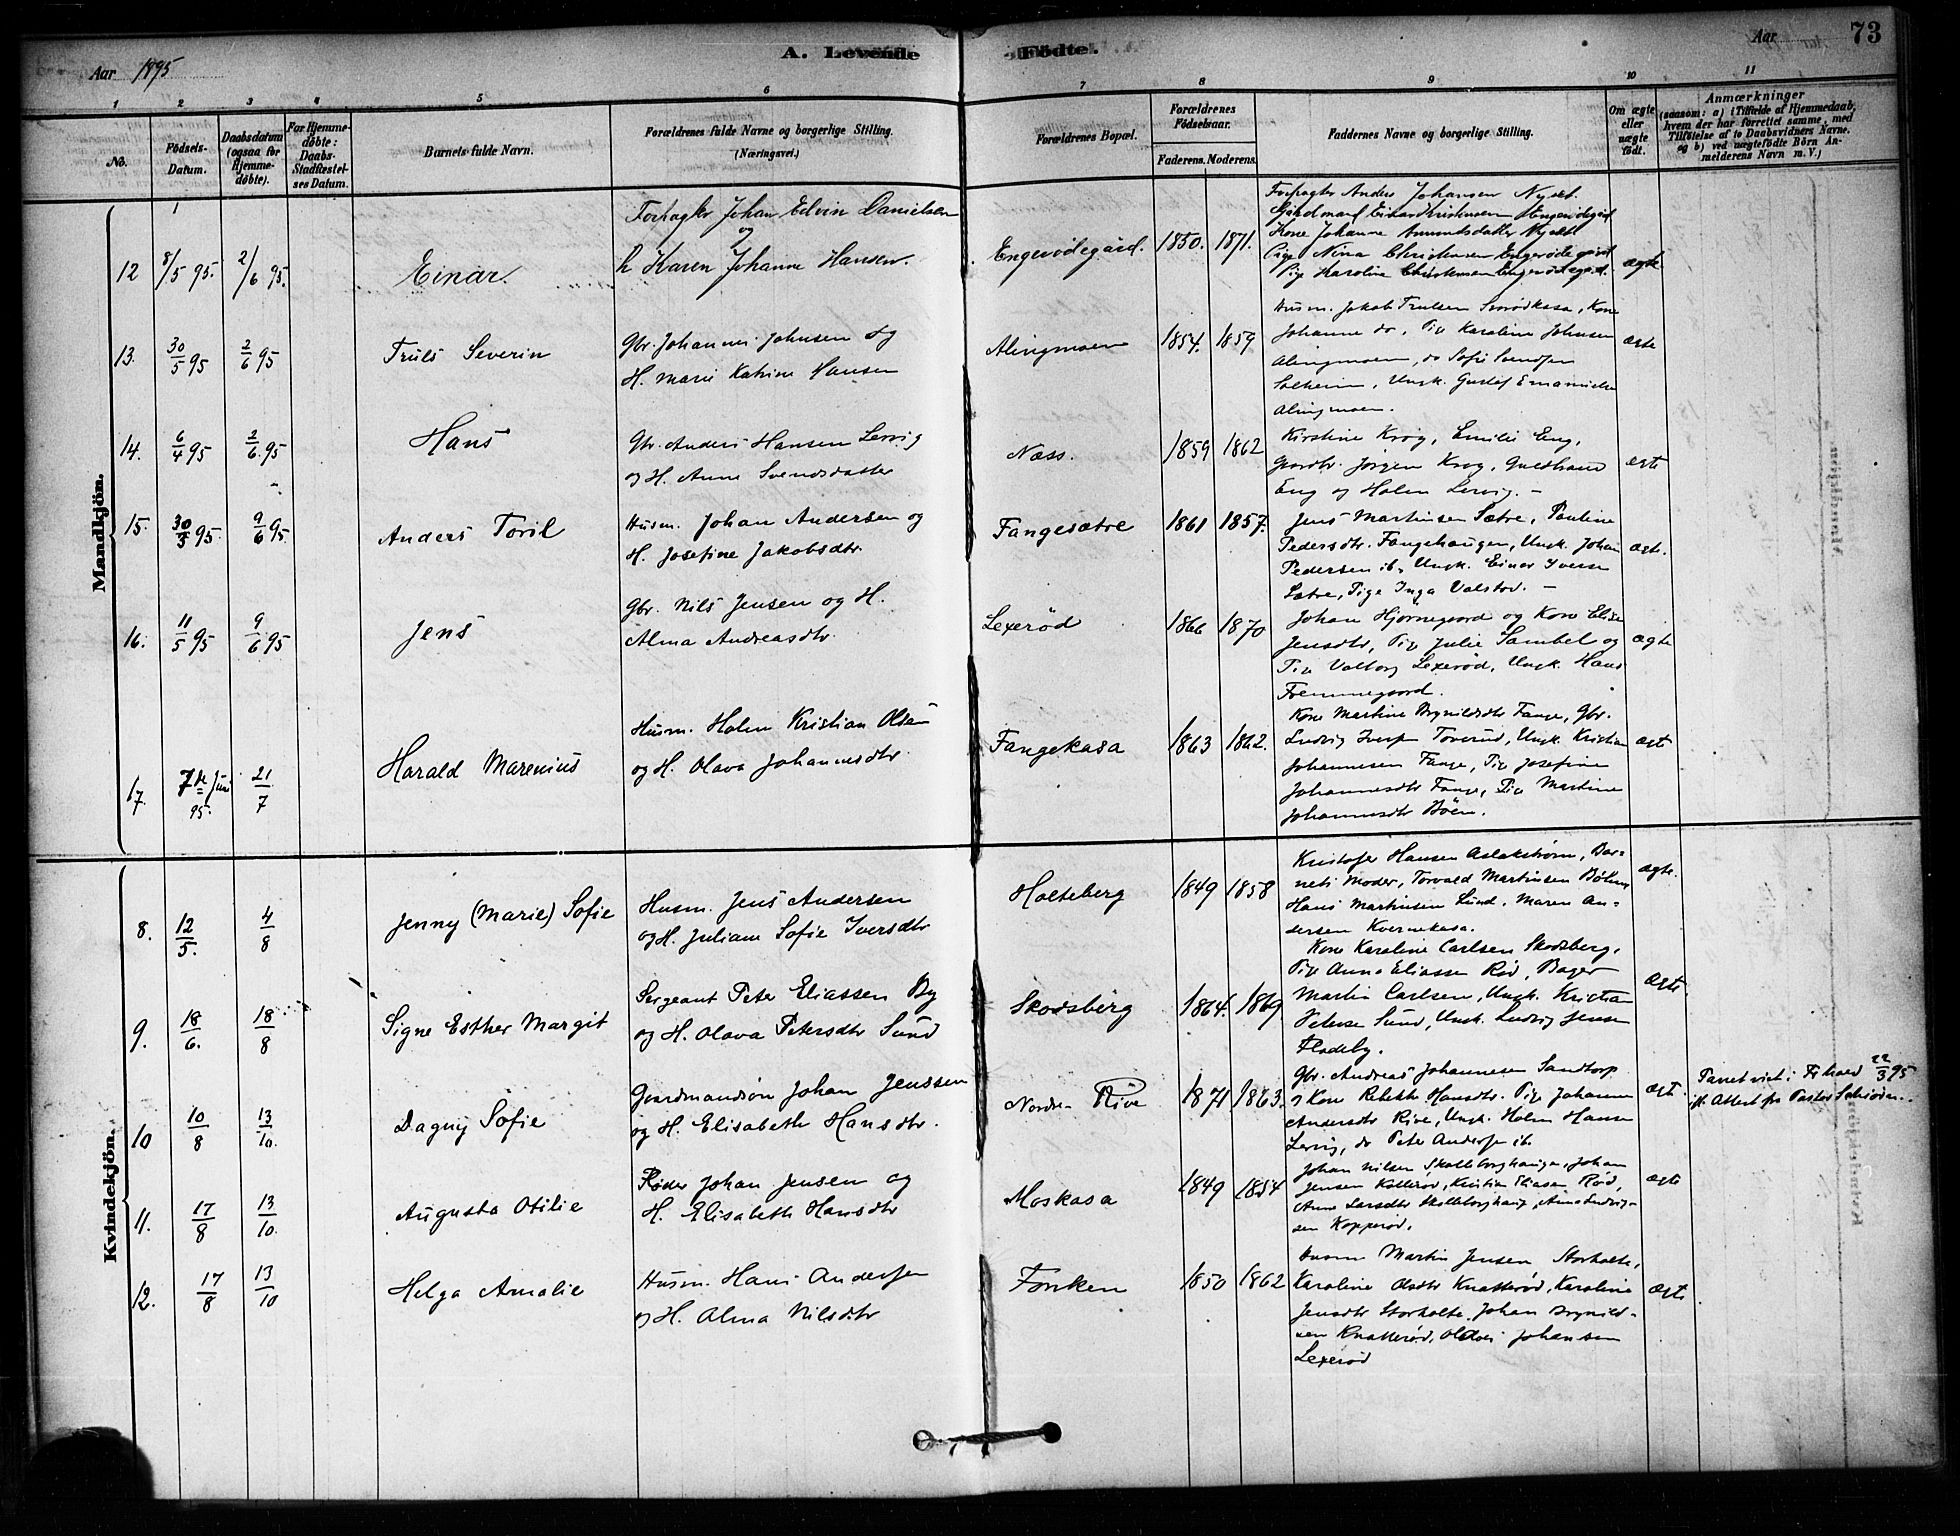 A. Levende Födte.
Aar 1895
Aar 73
1 2 3 4 5 6 7 8 9 10 11
No.
Fødsels-Datum.
Daabsdatum (ogsaa for Hjemmedøbte).
For Hjemmedøbte: Daabs-Stadfæstelses Datum.
Barnets fulde Navn.
Forældrenes fulde Navne og borgerlige Stilling. (Næringsvei.)
Forældrenes Bopæl.
Forældrenes Fødselsaar.
Faderens. Moderens.
Faddernes Navne og borgerlige Stilling.
Om ægte eller uægte født.
Anmærkninger
(saasom: a) i Tilfælde af Hjemmedaab,
hvem der har forrettet samme, med
Tilføielse af to Daabsvidners Navne.
og b) ved uægtefødte Börn Anmelderens Navn m. V.)
Mandkjön.
12 8/5 95. 2/6 95. Einar.
Forpagter Johan Edvin Danielsen
og
h Karen Johanne Hansen.
Engerødegård. 1850. 1871.
Forpagter Anders Johansen
Gårdmand Einar Kristensen Engerødegård
Kone Johanne
Pige Nina Christensen Engerødegård
Pige Karoline Christensen Engerødegård.
ægte
13. 30/5 95 2/6 95 Truls Severin
Gbr. Johannes Johnsen og
H. Marie Katrine Hansen
Alingmoen 1854. 1859
Husm. Jakob Trulsen, Kone
Johanne do, Pige Karoline Johnsen
Alingmoen, do Sofie Svendsen
Solheim, Ungk. Gustaf Emanuelsen
Alingmoen.
ægte
14. 6/4 95 2/6 95 Hans
Gbr. Anders Hansen Lervig
og H. Anne Svendsdatter
Næss. 1859 1862
Kirstine Krog, Emilie Eng,
Gaardbr. Jørgen Krog,
Eng og Holm Lervig. –
ægte
15. 30/3 95. 9/6 95. Anders Toril
Husm. Johan Andersen og
H. Josefine Jakobsdtr.
Fangesætre 1861 1857.
Jens Martinsen Sætre, Pauline
Pedersdtr. Fangehaugen, Ungk. Johan
Pedersen ib., Ungk. Einar Iversen
Sætre, Pige Inga Valstad. –
ægte.
16. 11/5 95 9/6 95 Jens
Gbr. Nils Jensen og H.
Alma Andreasdtr.
Lexerød 1866 1870
Johan Hjørnegaard og Kone Elise
Jensdtr, Pige Julie Sambel og
Pige Valborg Lexerød, Ungk. Hans
Fremmegaard.
ægte
17. 7de Juni 95. 21/7 Harald Marenius
Husm. Holm Kristian Olsen
og H. Olava Johannesdtr.
Fangekasa 1863 1862.
Kone Martine Brynildsdtr Fange, Gbr.
Ludvig Iversen Toverud, Ungk. Kristian
Johannesen Fange, Pige Josefine
Johannesdtr Fange, Pige Martine
Johannesdtr Böen.
ægte
Kvindekjön.
8. 12/5. 4/8 Jenny (Marie) Sofie
Husm. Jens Andersen
og H. Juliane Sofie Iversdtr
Holteberg 1849 1858
Kristofer Hansen Aslakstrøm, Barnets
Moder, Torvald Martinsen
Hans Martinsen Lund, Maren Andersen
Kvernekasa.
ægte.
9. 18/6. 18/8 Signe Esther Margit
Sergeant Peter Eliassen By
og H. Olava Petersdtr Sund
Skodsberg 1864. 1869
Kone Karoline Carlsen Skodsberg,
Pige Anna Eliassen Rød, Bager
Martin Carlsen, Ungk. Kristian
Petersen Sund, Ungk. Ludvig Jensen
Flodeby.
ægte
10 10/8 13/10. Dagny Sofie
Gaardmandsøn Johan Jenssen
og H. Elisabeth Hansdtr.
Nordre Rive 1871 1863.
Gbr. Andreas Johannesen Sandtorp
og Kone Rebekka Hansdtr. Pige Johanne
Andersdtr Rive, Ungk. Holm Hansen
Lervig, do Peter Andersen ib.
ægte
22/3 95
11. 17/8 13/10. Augusta Otilie
Røder Johan Jensen og
H. Elisabeth Hansdtr
Moskasa 1849 1854
Johan Nilsen Skolleborghaugen, Johan
Jensen Kollerød, Kristian Eliasen Rød,
Anne Larsdtr Skolleborghaug, Anne Ludvigsen
Kopperød.
ægte
12. 17/8 13/10 Helga Amalie
Husm. Hans Andersen
og H. Alma Nilsdtr
Fonken 1850 1862
Husm Martin Jensen Storholte,
Karoline Olsdtr Knatterød, Karoline
Jensdtr Storholte, Johan Brynildsen
Knatterød, Oldvei Johansen
Lexerød
ægte